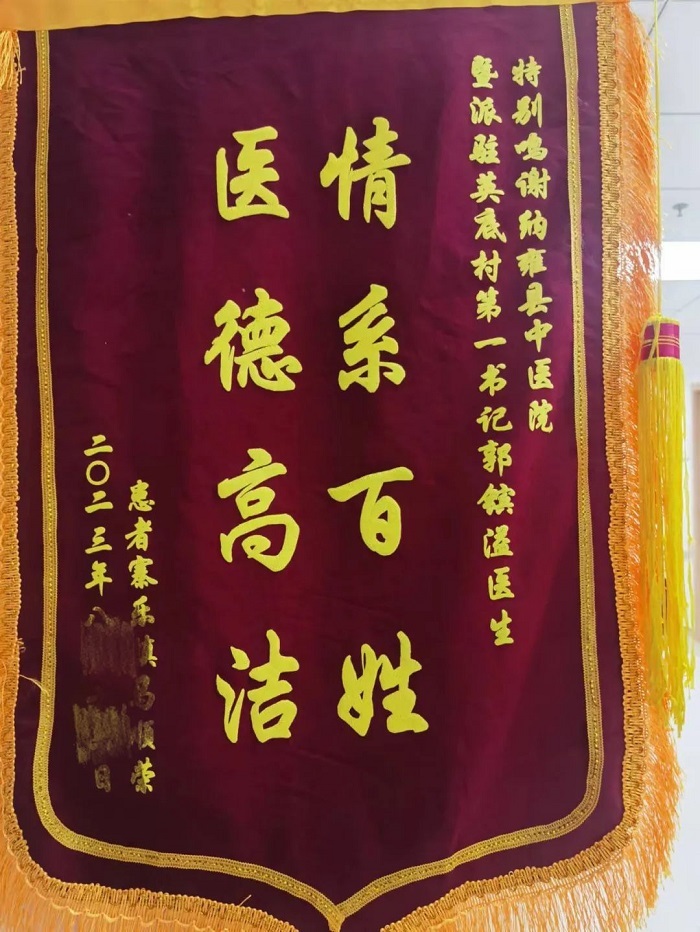 特别鸣谢纳雍县中医院
暨派驻英底村第一书记郭镔溢医生
情系百姓
医德高洁
患者寨乐镇吕顺荣
二〇二三年八 日